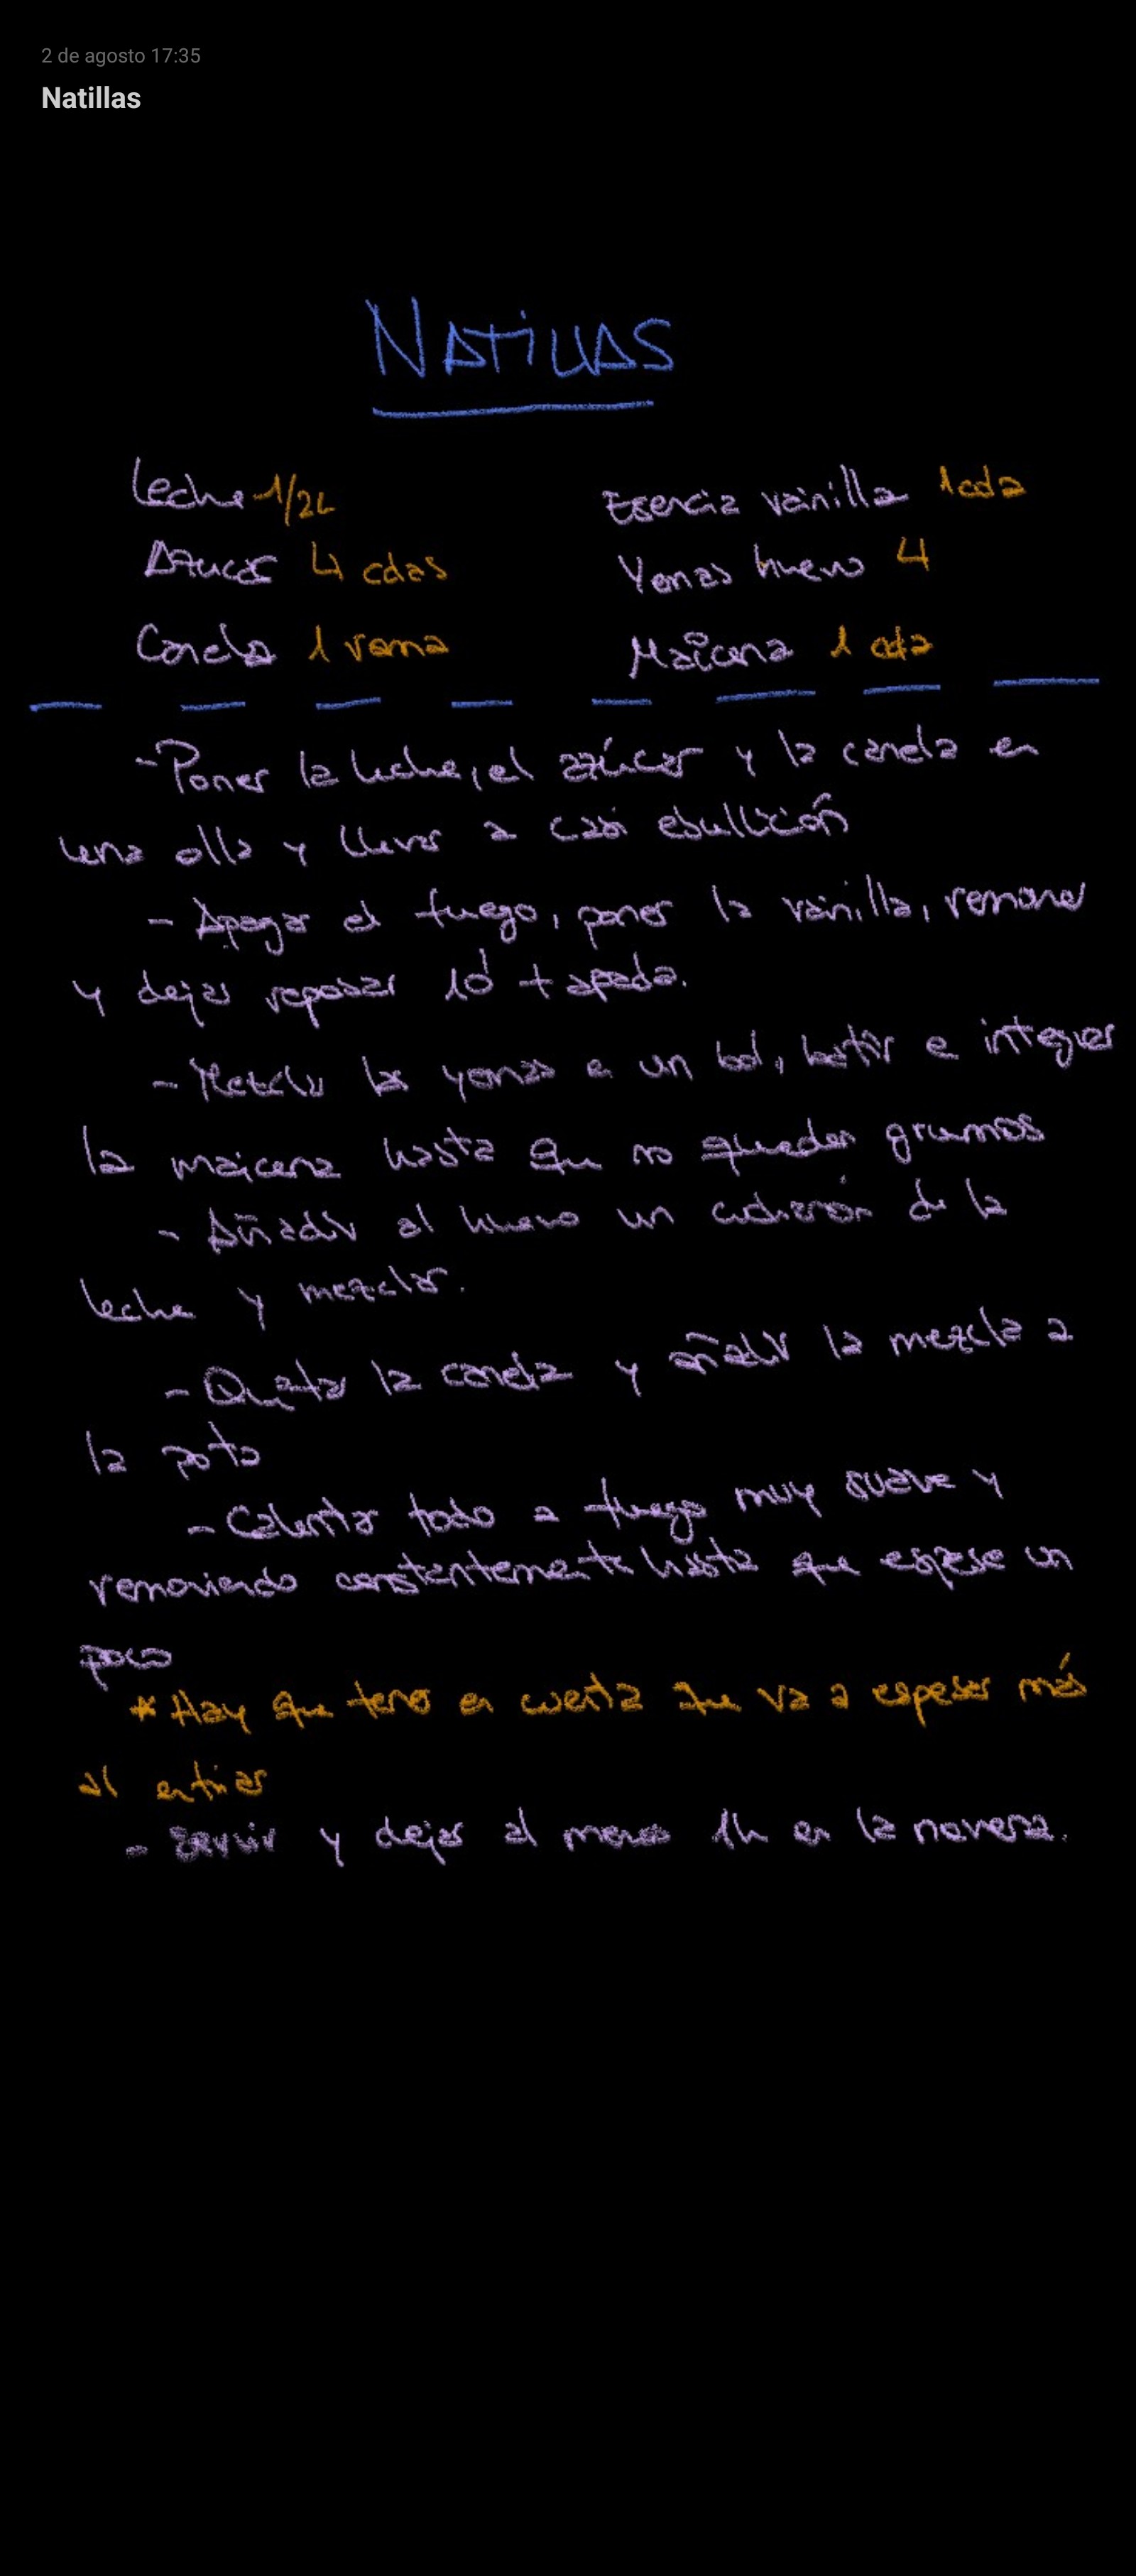 2 de agosto 17:35
Natillas
NATILLAS
Leche 1/2L Esencia vainilla 1 cda
Azucar 4 cdas Yemas huevo 4
Canela 1 rama Maicena 1 cda
- Poner la leche, el azúcar y la canela en
una olla y llevar a casi ebullición
- Apagar el fuego, poner la vainilla, remover
y dejar reposar 10' tapada.
- Mezclar las yemas e un bol, batir e integrar
la maicena hasta que no queden grumos
- Añadir al huevo un cucharón de la
leche y mezclar.
- Quitar la canela y añadir la mezcla a
la pota
- Calentar todo a fuego muy suave y
removiendo constantemente hasta que espese un
poco
* Hay que tener en cuenta que va a espesar más
al enfriar
- Servir y dejar al menos 1h en la nevera.